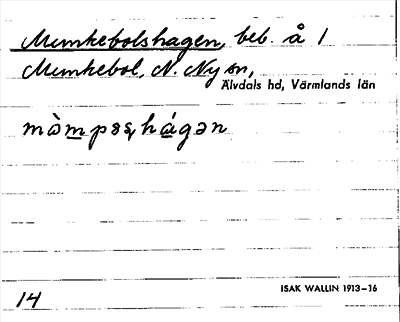 Munkebolshagen, beb. å 1
Munkebol, N. Ny sn,
Älvdals hd, Värmlands län
ISAK WALLIN 1913–16
14